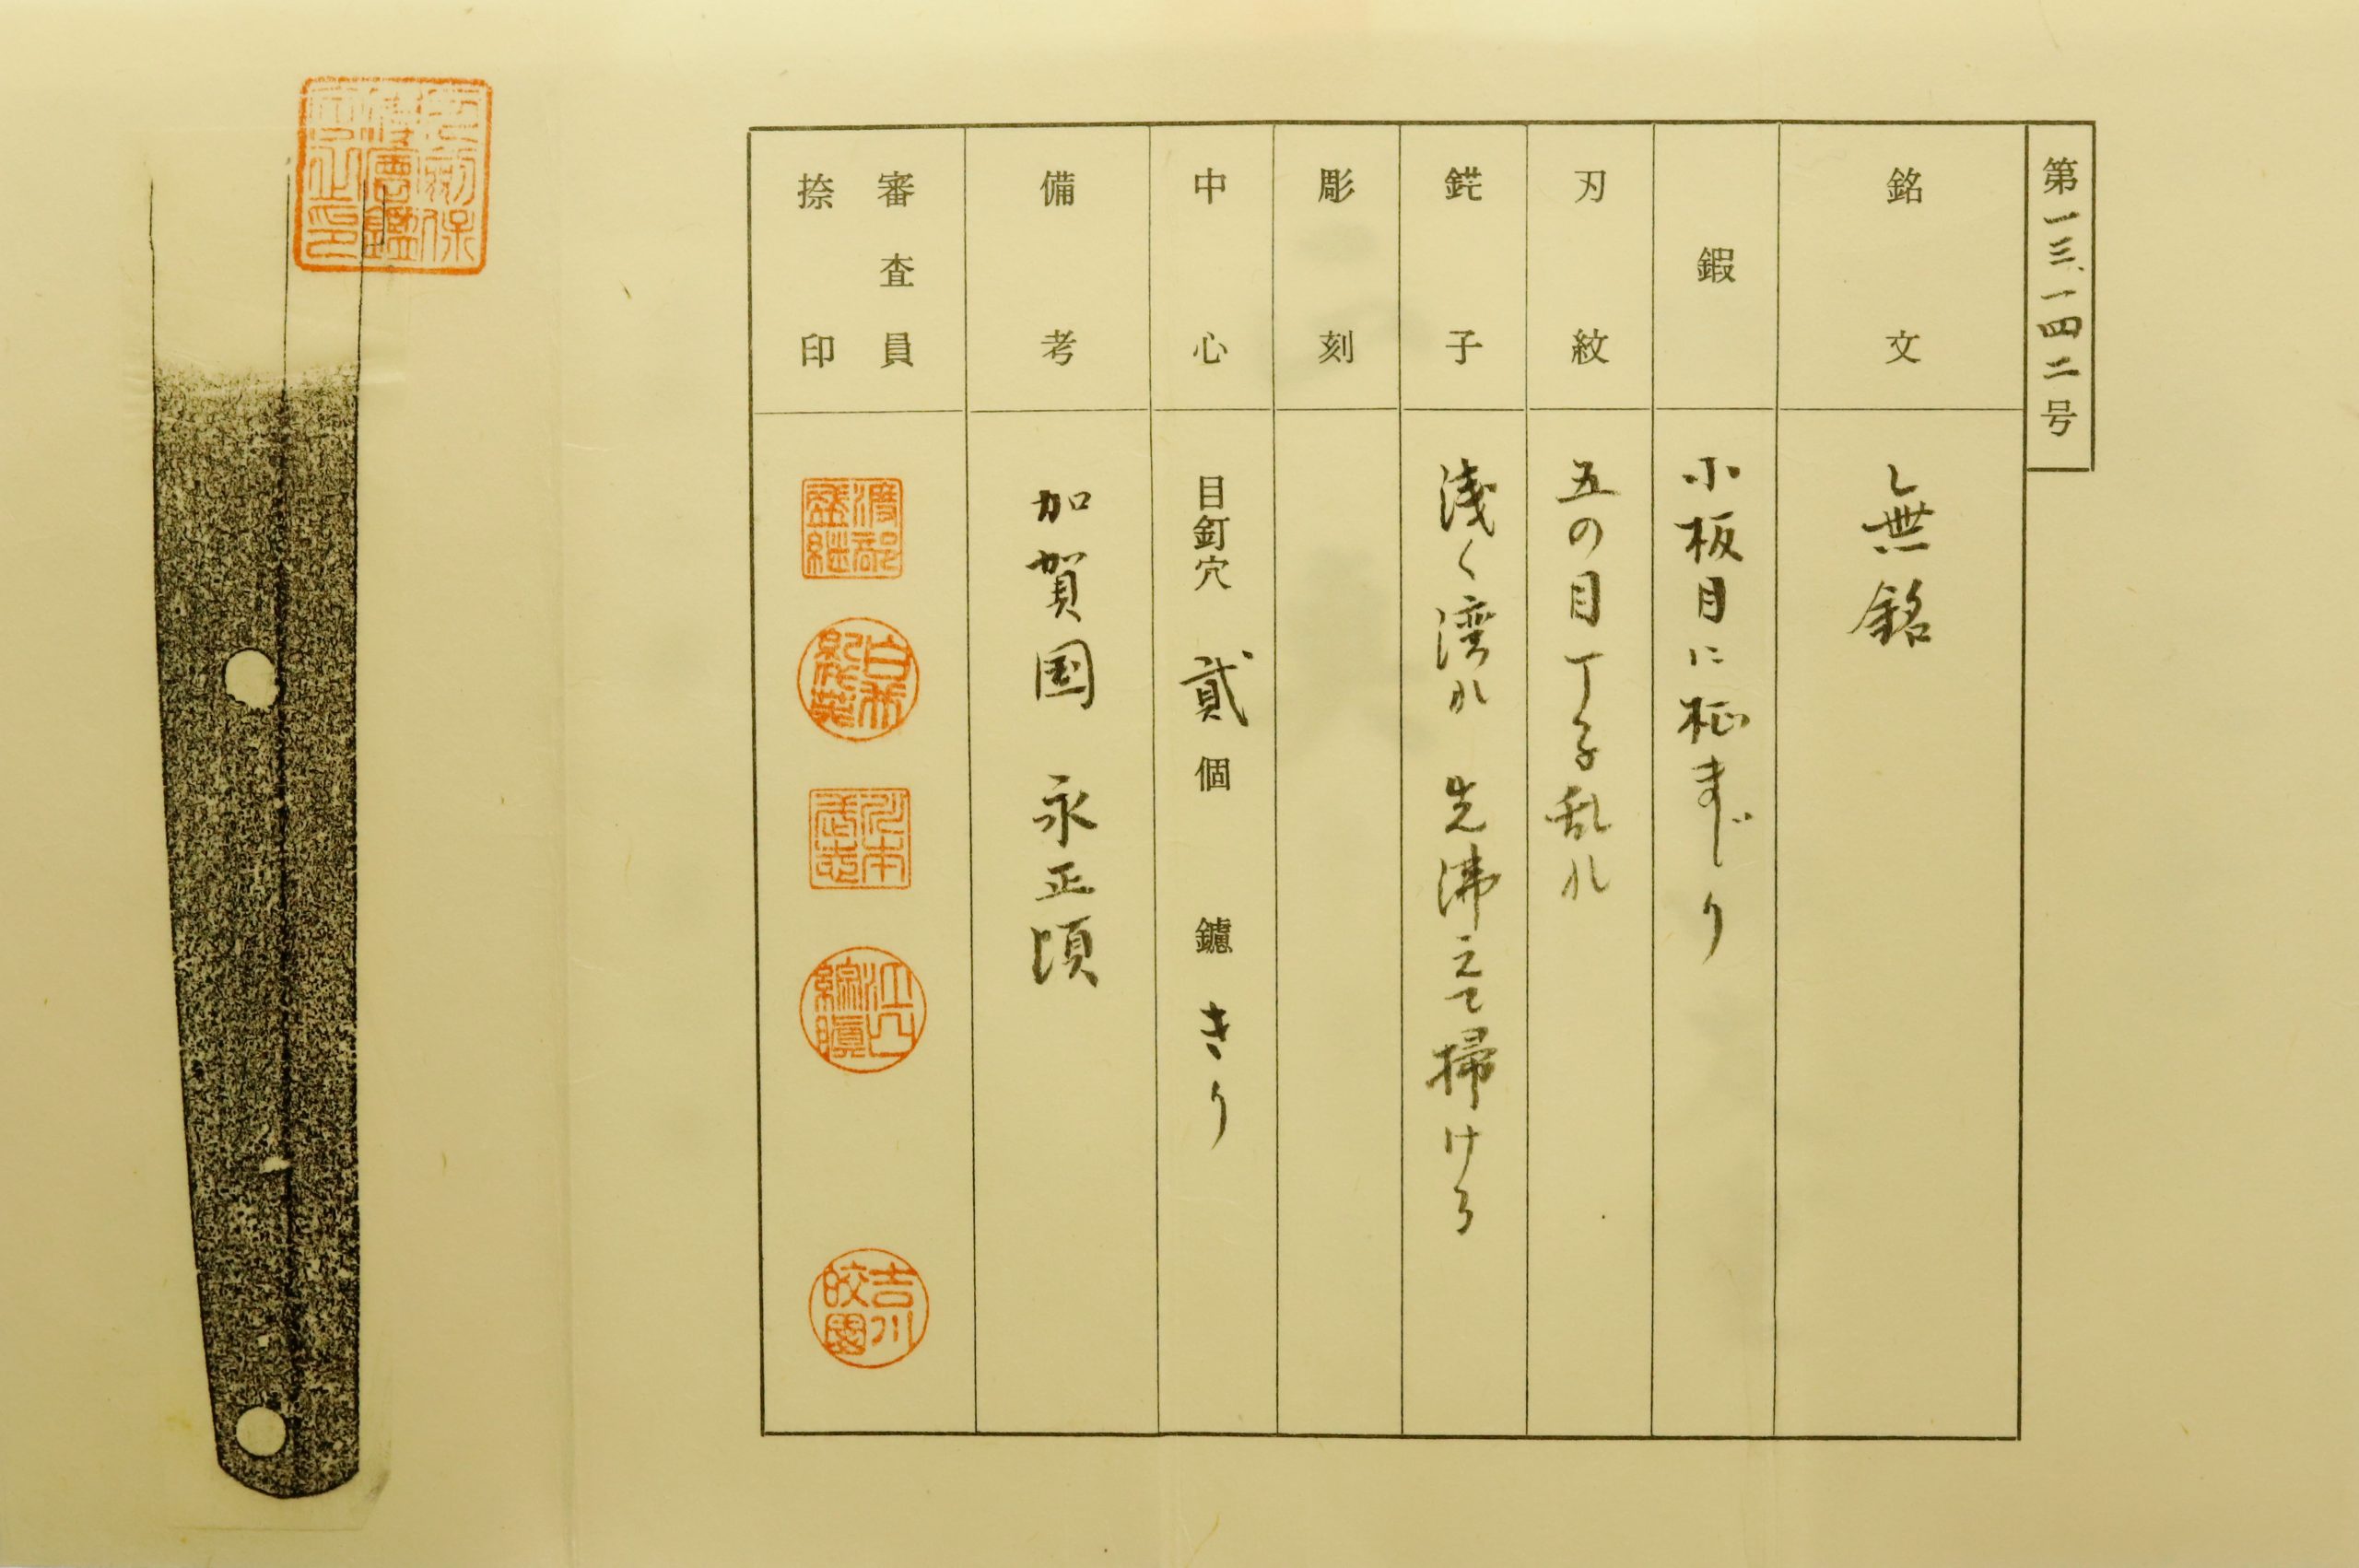 第一三、一四二号
銘文 無銘
鍜 小板目に柾まじり
刃紋 五の目丁子乱れ
鋩子 浅く湾れ 先沸えて掃ける
彫刻
中心 目釘穴 貳個 鑢 きり
備考 加賀国 永正頃
審査員
捺印
吉川皎園